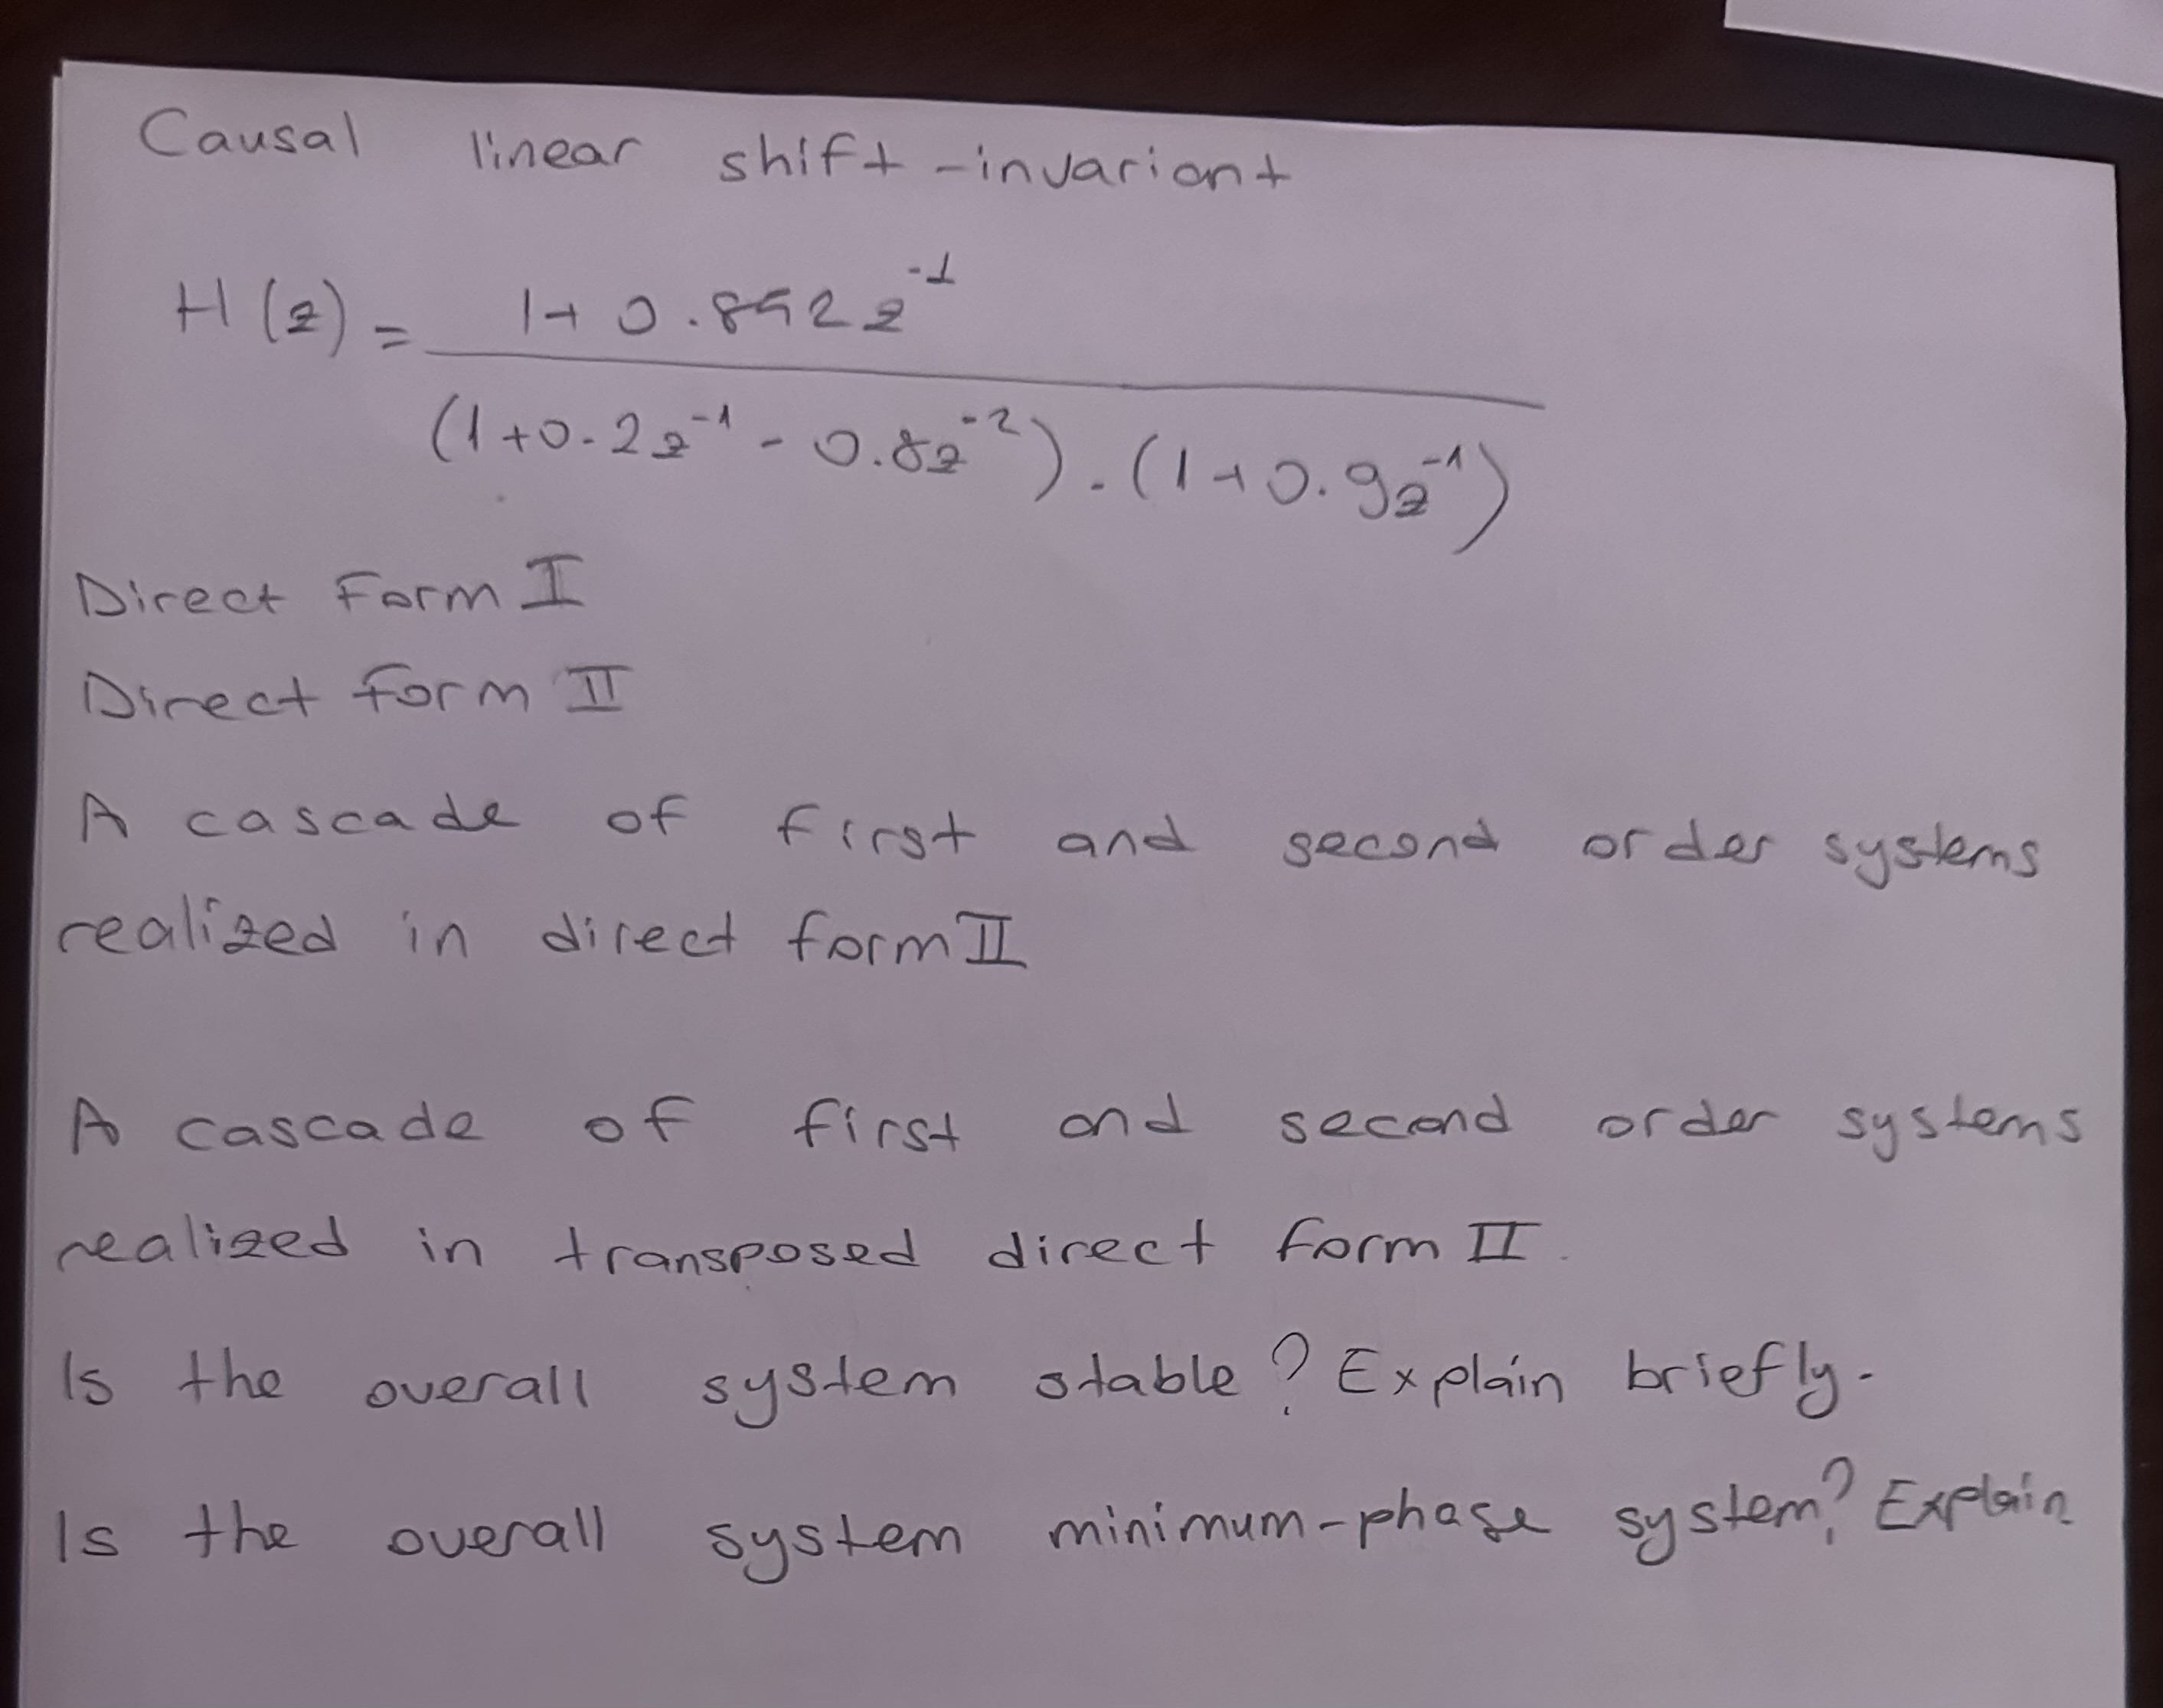 Causal linear shift-invariant
H(z) = 1+0.892z^-1
(1+0.2z^-1 - 0.8z^-2).(1+0.9z^-1)
Direct Form I
Direct form II
A cascade of first and second order systems
realized in direct form II
A cascade of first and second order systems
realized in transposed direct form II.
Is the overall system stable? Explain briefly.
Is the overall system minimum-phase system? Explain